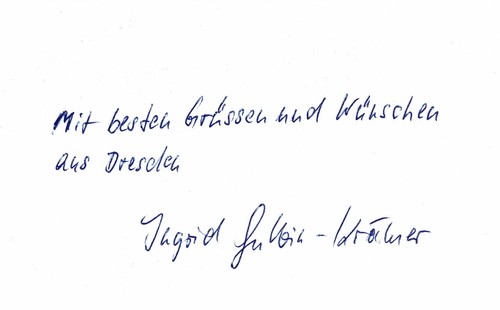 Mit besten Grüssen und Wünschen
aus Dresden
Ingrid Gulbin-Krämer